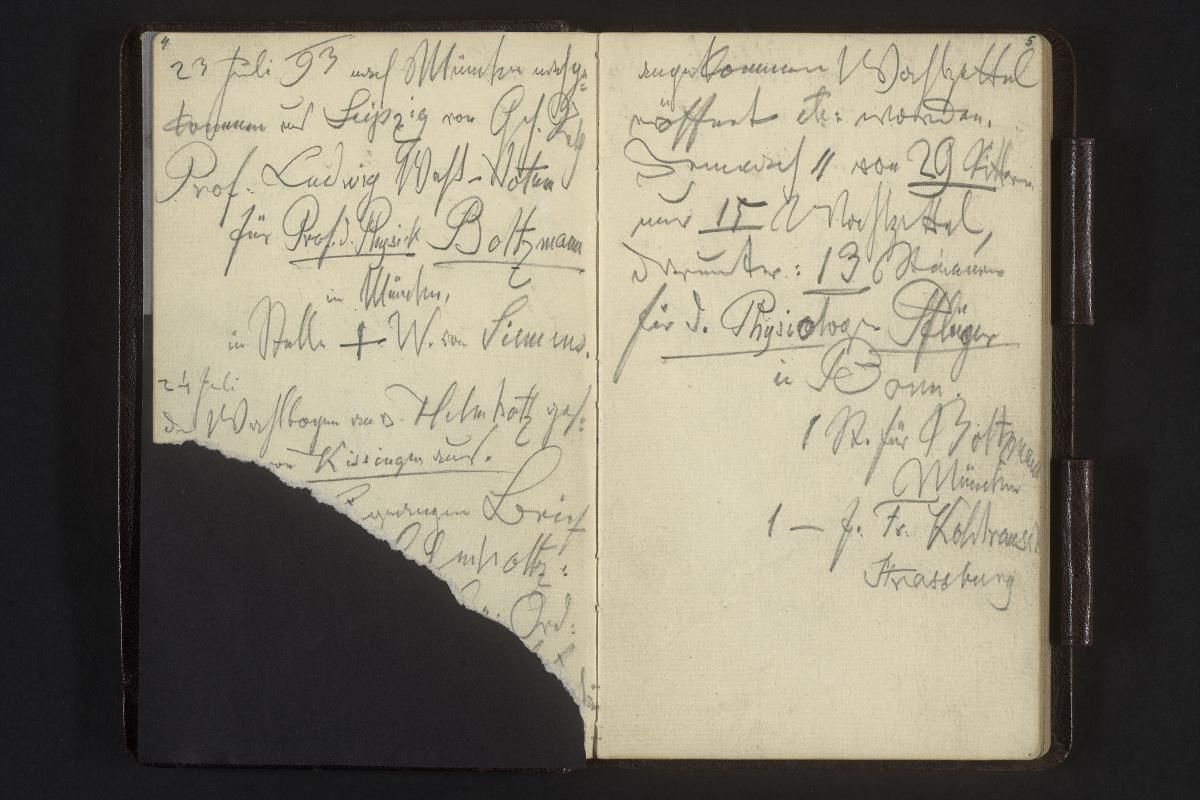 4
23 Juli 93 nach München nachge-
kommen aus Leipzig von Geh. R.
Prof. Ludwig Wahl-Votum
für Prof. d. Physick Boltzmann
in München,
in Stelle † W. von Siemens.
24 Juli
den Wahlbogen an v. Helmholtz gesch:
von Kissingen aus.
gegangen Brief
Helmholtz:
Ord:
5
angekommen Wahlzettel
eröffnet etc: worden.
Demnach " von 29 Rittern
nur 15 Wahlzettel,
darunter: 13 Stimmen
für d. Physiologen Pflüger
in Bonn.
1 St. für Boltzmann
München
1 — f. Fr. Kohlrausch
Strassburg